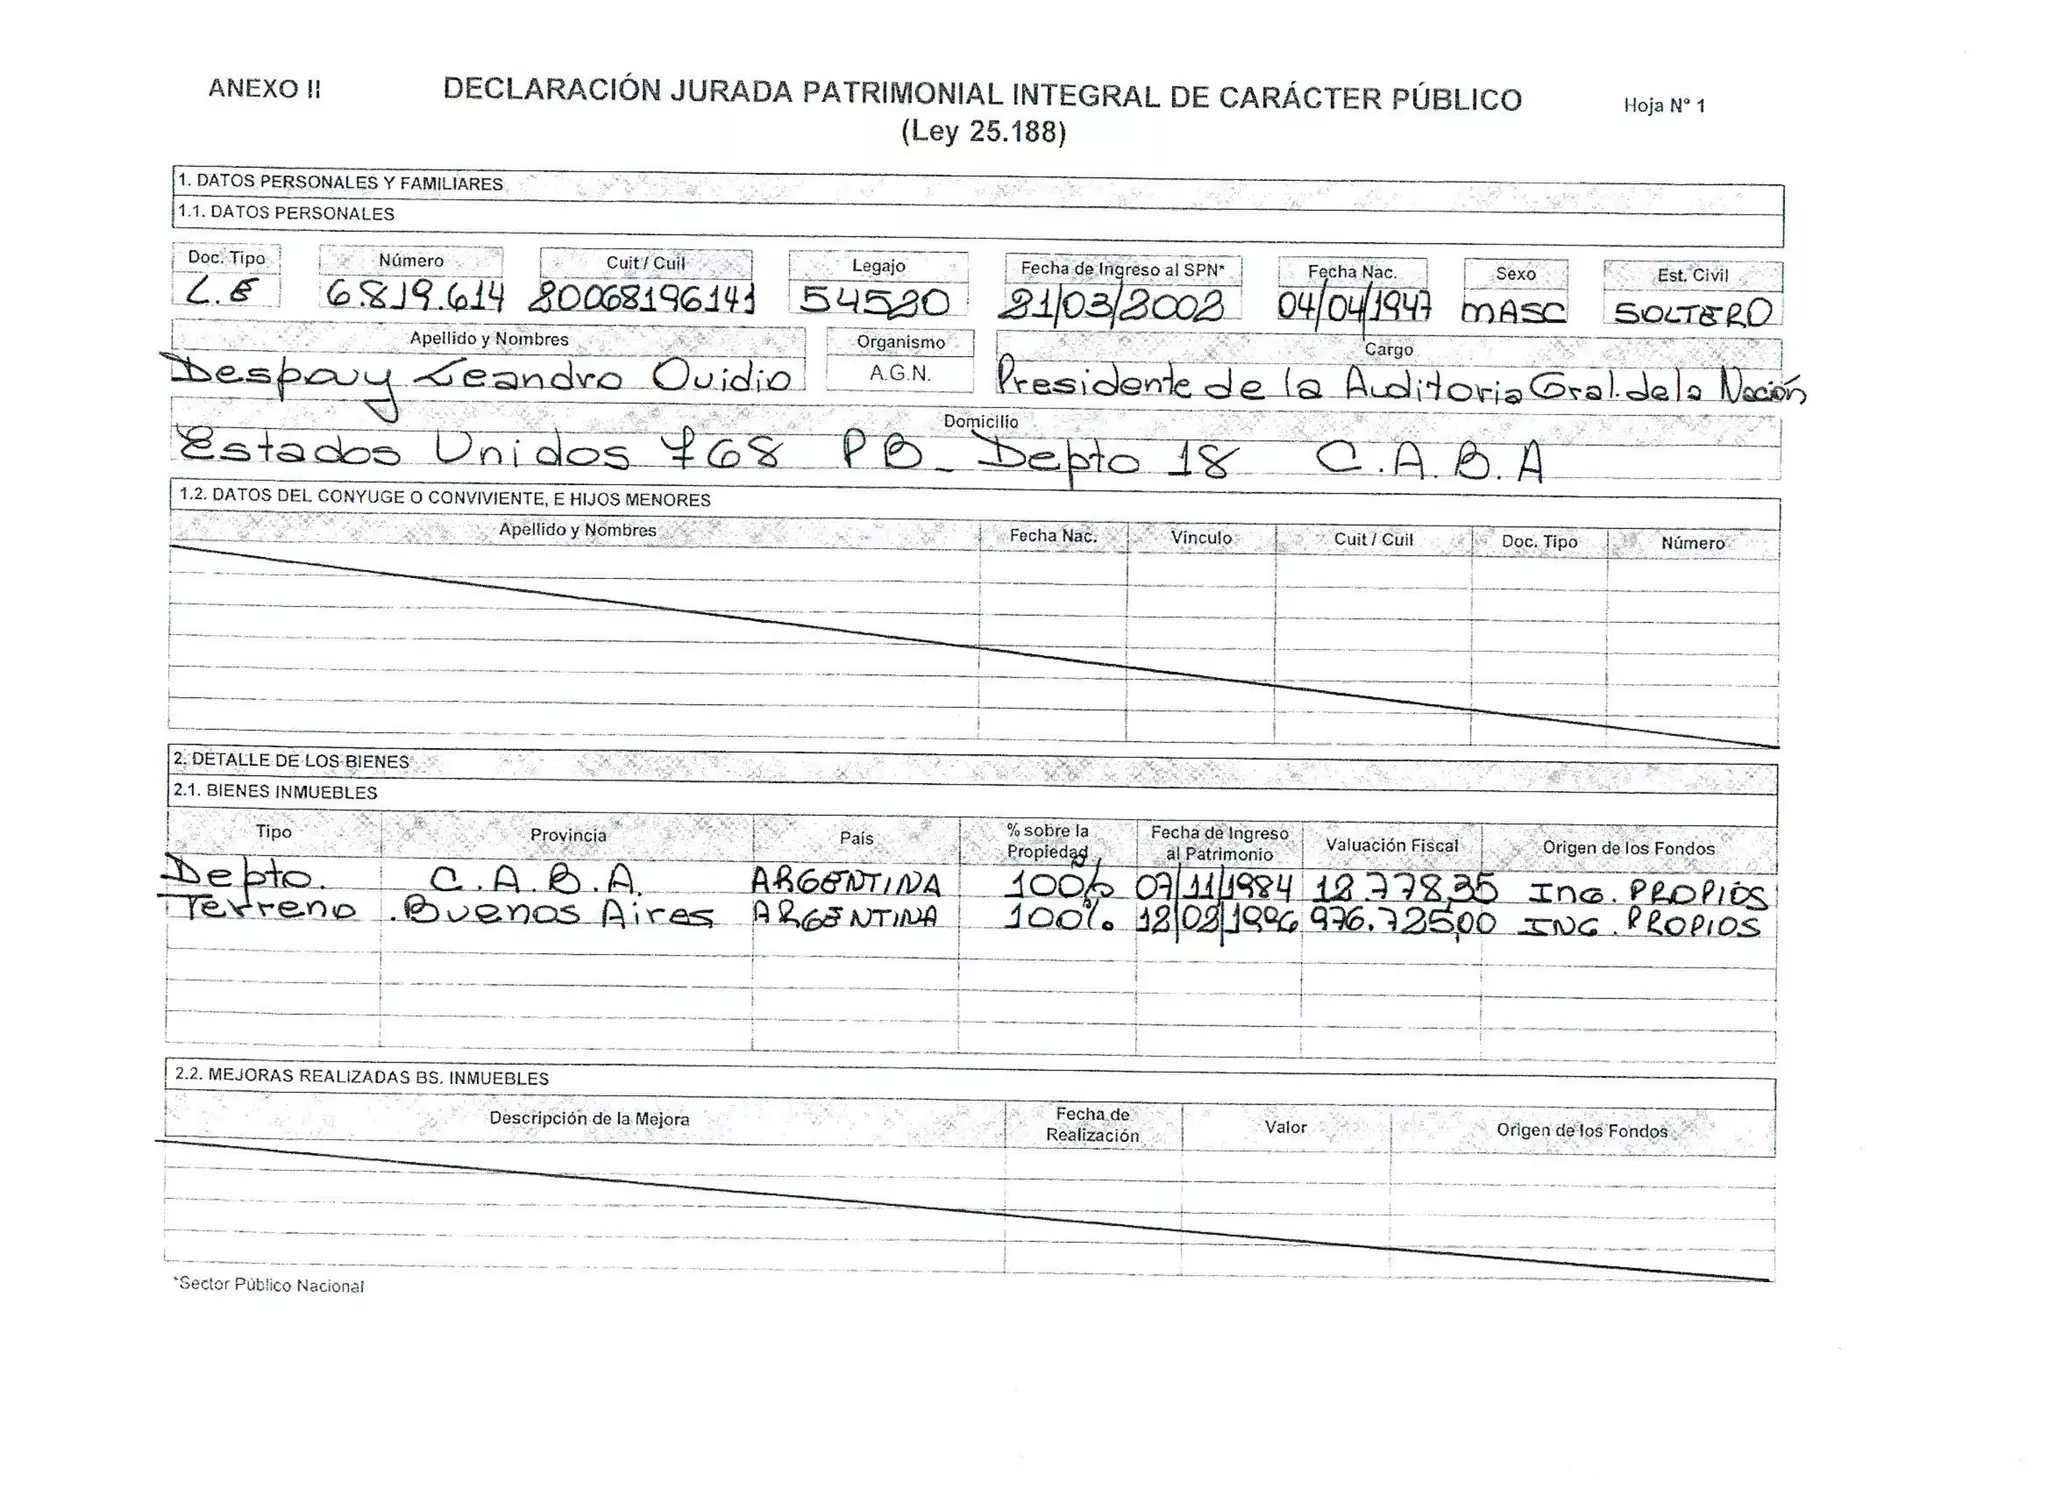 ANEXO II DECLARACIÓN JURADA PATRIMONIAL INTEGRAL DE CARÁCTER PÚBLICO Hoja N° 1
(Ley 25.188)
1. DATOS PERSONALES Y FAMILIARES
1.1. DATOS PERSONALES
Doc. Tipo Número Cuit / Cuil Legajo Fecha de Ingreso al SPN* Fecha Nac. Sexo Est. Civil
L.E 6.819.614 20068196141 54520 21/03/2002 04/04/1947 MASC SOLTERO
Apellido y Nombres Organismo Cargo
Despouy Leandro Ovidio A.G.N. Presidente de la Auditoria Gral. de la Nación
Domicilio
Estados Unidos 768 PB - Depto 18 C.A.B.A
1.2. DATOS DEL CONYUGE O CONVIVIENTE, E HIJOS MENORES
Apellido y Nombres Fecha Nac. Vínculo Cuit / Cuil Doc. Tipo Número
2. DETALLE DE LOS BIENES
2.1. BIENES INMUEBLES
Tipo Provincia País % sobre la Propiedad Fecha de Ingreso al Patrimonio Valuación Fiscal Origen de los Fondos
Depto. C.A.B.A. ARGENTINA 100% 07/11/1984 12.778,35 ING. PROPIOS
Terreno .Buenos Aires ARGENTINA 100% 12/02/1996 976.725,00 ING. PROPIOS
2.2. MEJORAS REALIZADAS BS. INMUEBLES
Descripción de la Mejora Fecha de Realización Valor Origen de los Fondos
*Sector Público Nacional